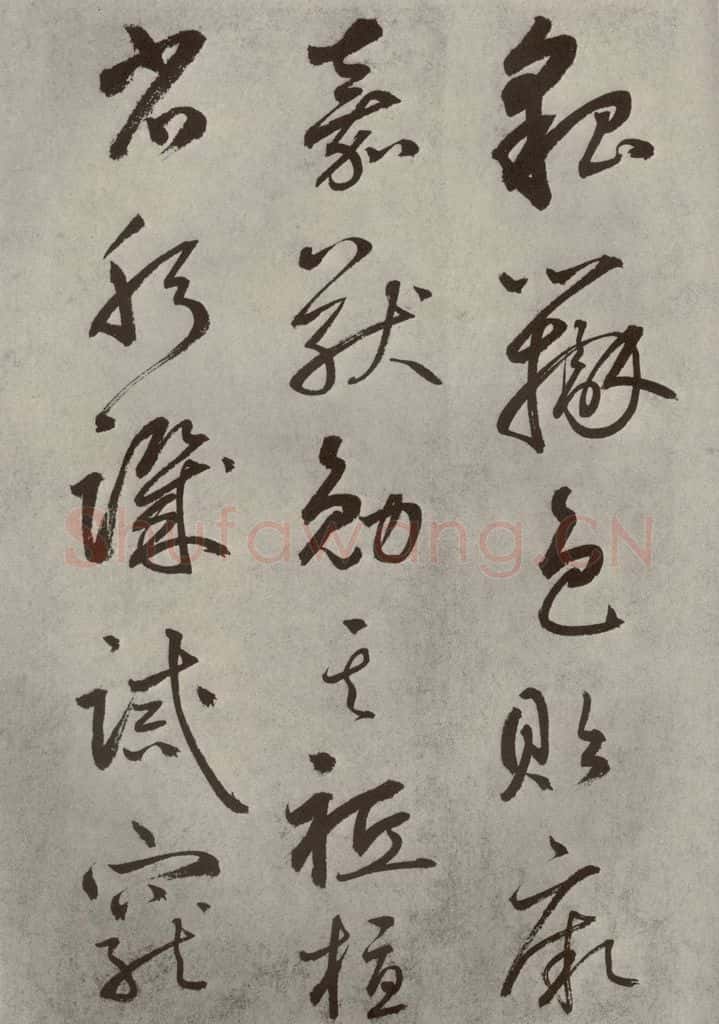 貌辨色貽厥
嘉猷勉其祗植
省躬譏誡寵
Shufawang.CN